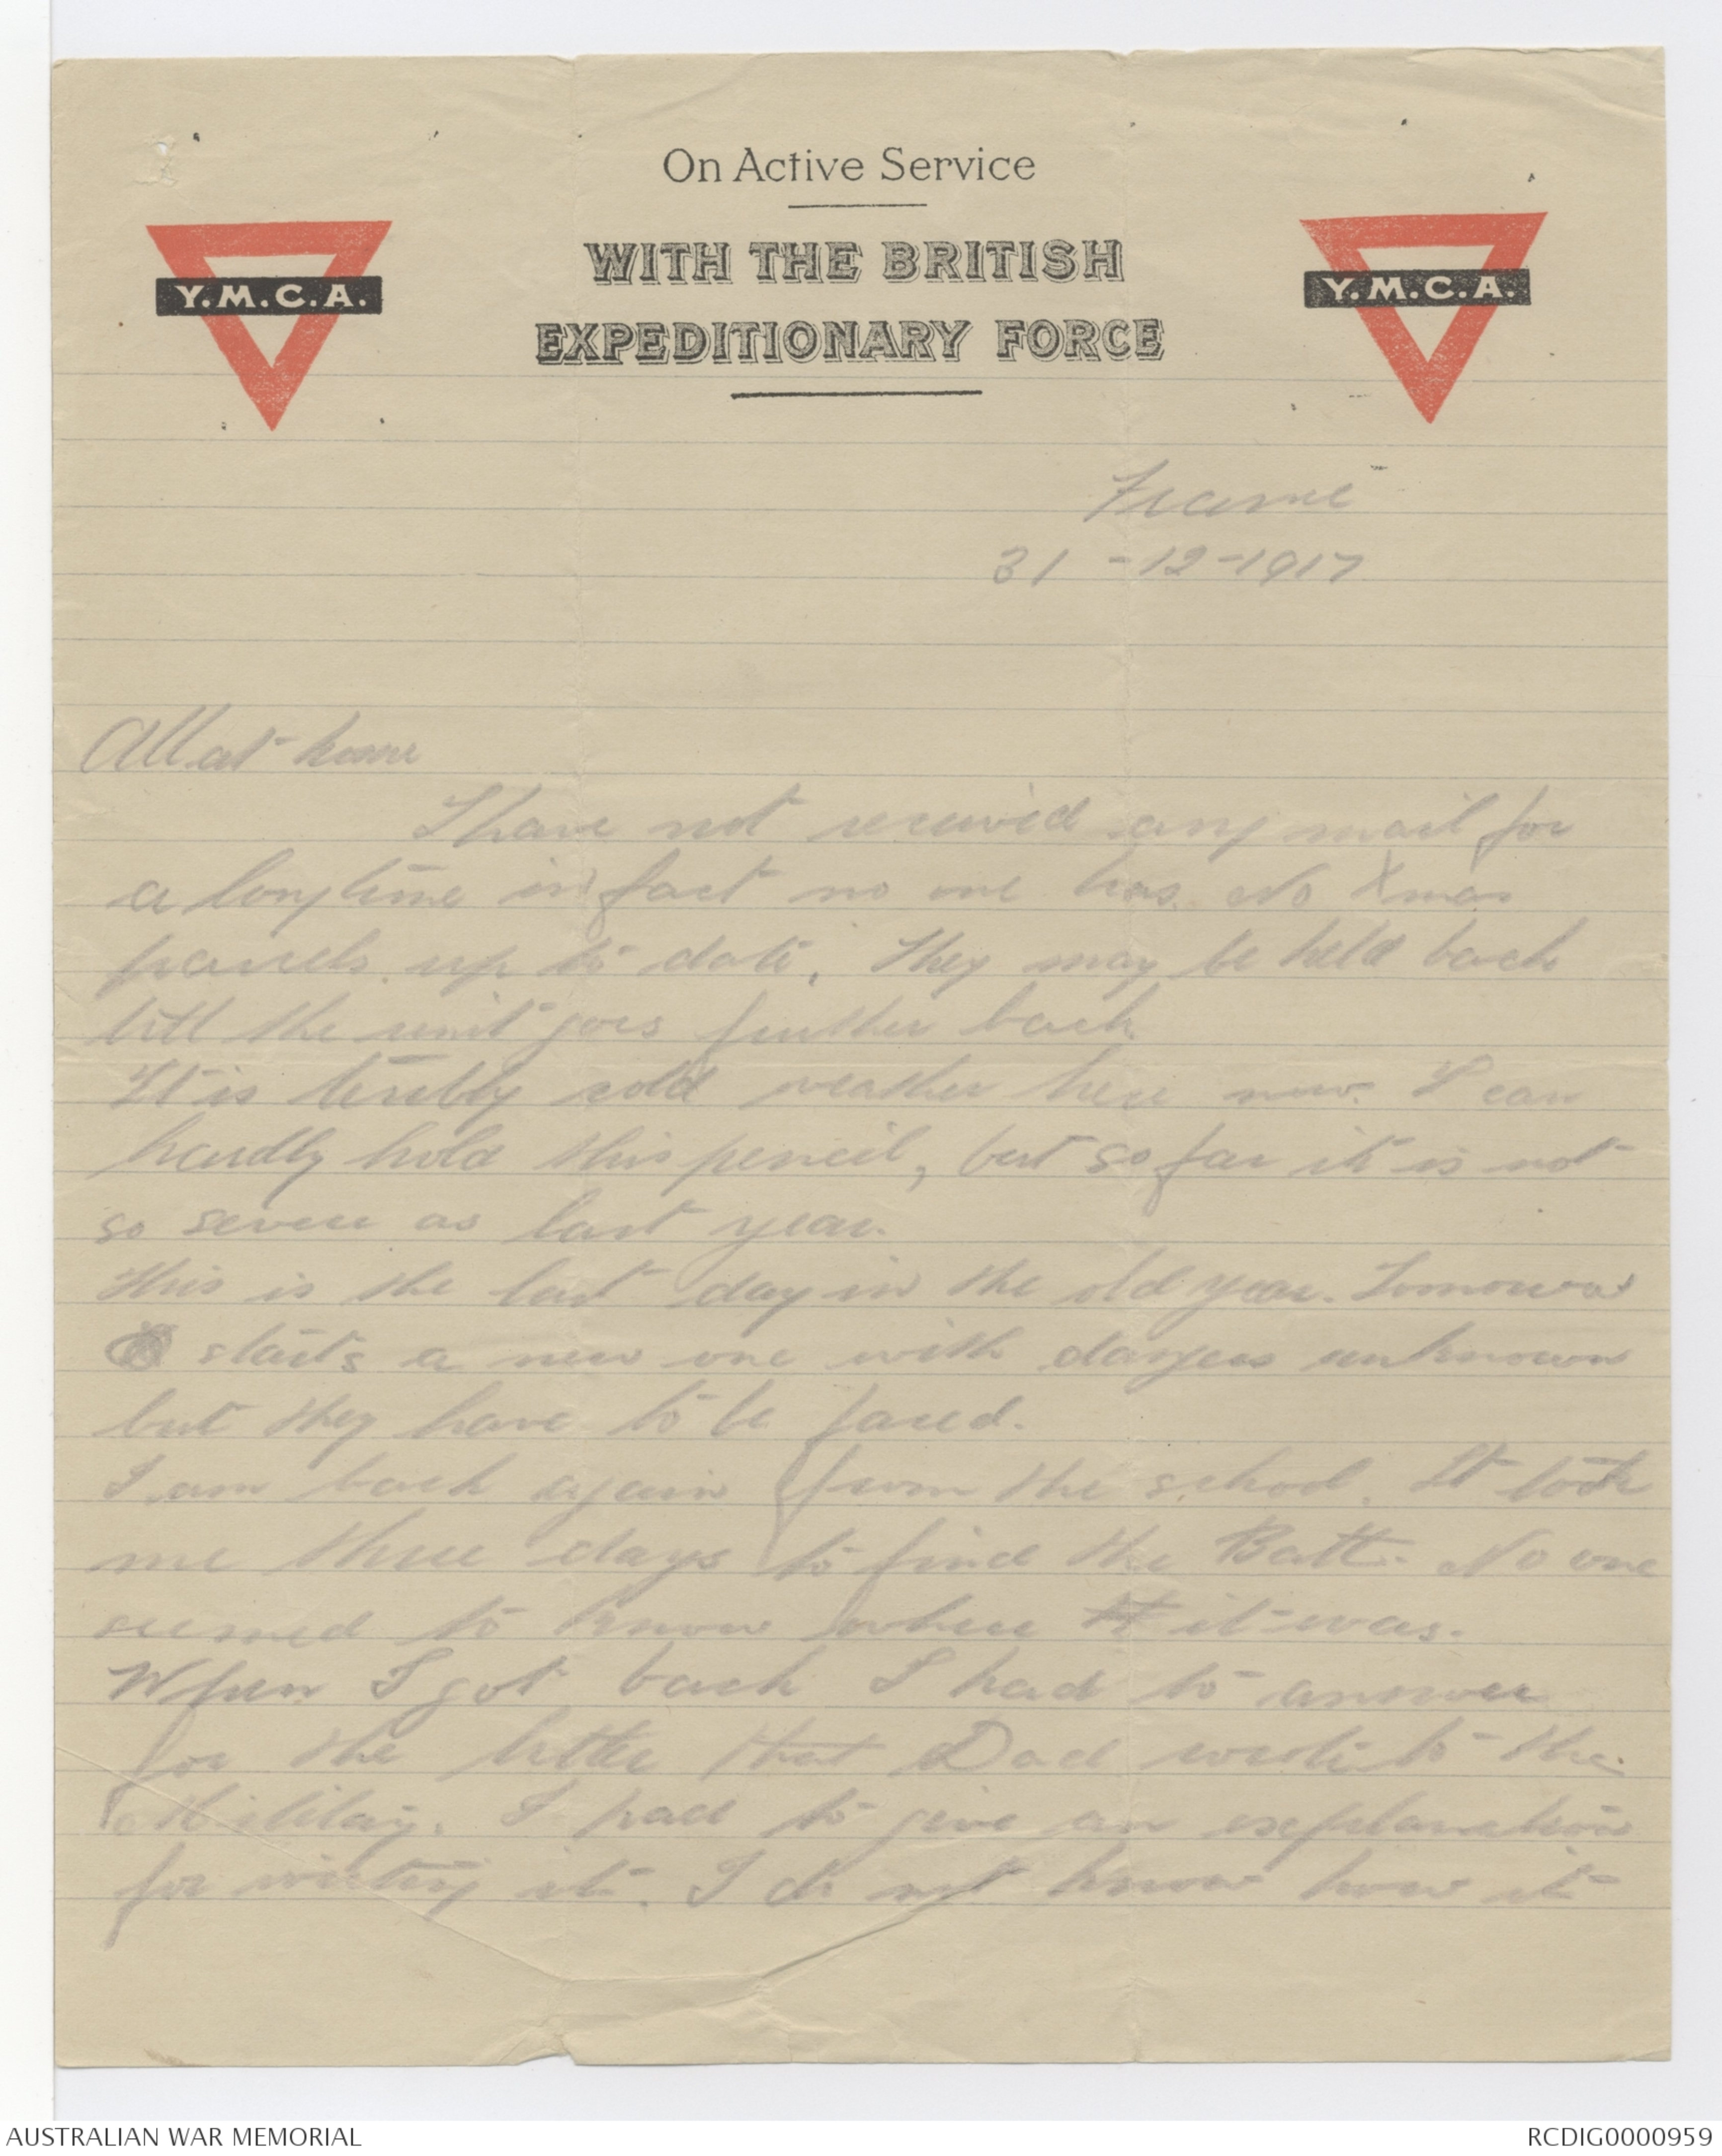 On Active Service
WITH THE BRITISH
EXPEDITIONARY FORCE
Y.M.C.A.
Y.M.C.A.
France
31-12-1917
All at home
I have not received any mail for
a long time in fact no one has. No Xmas
parcels up to date. They may be held back
till the unit goes further back.
It is teribly cold weather here now. I can
hardly hold this pencil, but so far it is not
so severe as last year.
This is the last day in the old year. Tomorow
starts a new one with dangers unknown
but they have to be faced.
I am back again from the school. It took
me three days to find the Batt. No one
seemed to know where it was.
When I got back I had to answer
for the letter that Dad wrote to the
Military. I had to give an explanation
for writing it. I do not know how it
AUSTRALIAN WAR MEMORIAL
RCDIG0000959